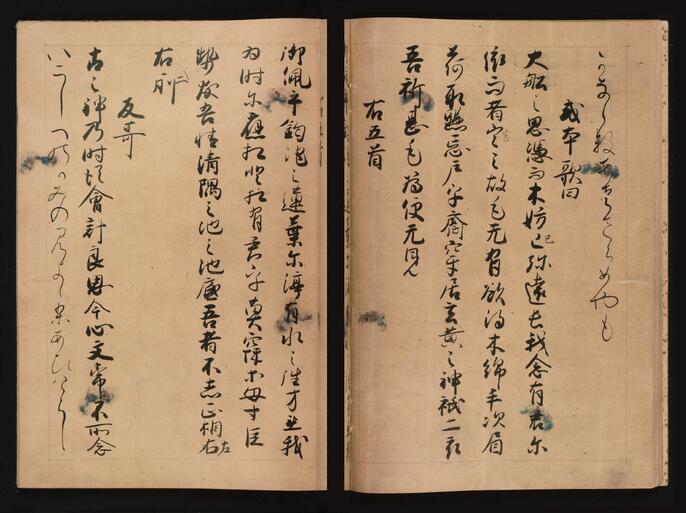 或本歌曰
大船之思憑而木妨己弥遠長我念有君尓
依而者言之故毛无有欲得木綿手次肩
荷取懸忌戸乎齋穿居玄黄之神祇二衣
吾祈甚毛為便无見
右五首
御佩乎釼池之蓮葉尓渟有水之徃方無我
為時尓應相登相有君乎莫寐等母寸巨
勢友吾情清隅之池之池底吾者不忘正相左右
反哥
古之神乃時従會計良思今心文常不所念
いにしへのかみの